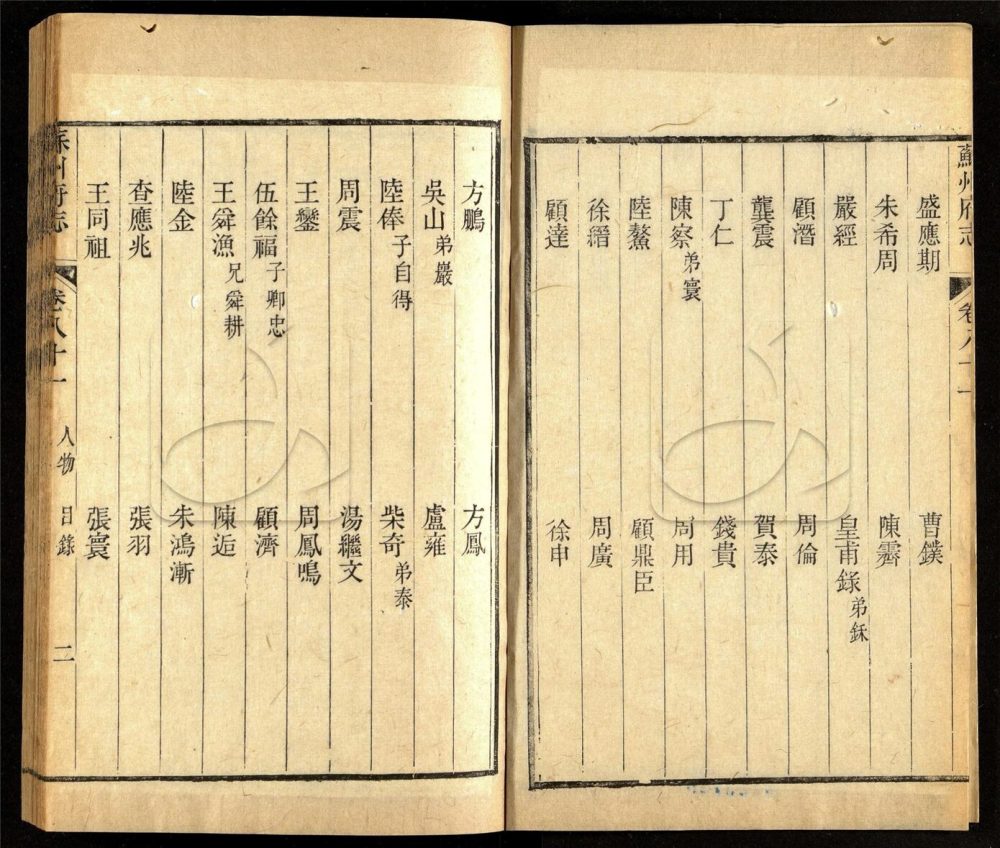 蘇州府志 卷八十一
盛應期 曹鏷
朱希周 陳霽
嚴經 皇甫錄弟銾
顧潛 周倫
龔震 賀泰
丁仁 錢貴
陳察弟寰 周用
陸鰲 顧鼎臣
徐縉 周廣
顧達 徐申
方鵬 方鳳
吳山弟巖 盧雍
陸俸子自得 柴奇弟泰
周震 湯繼文
王鑾 周鳳鳴
伍餘福子卿忠 顧濟
王舜漁兄舜耕 陳逅
陸金 朱鴻漸
查應兆 張羽
王同祖 張寰
蘇州府志 卷八十一 人物 目錄 二